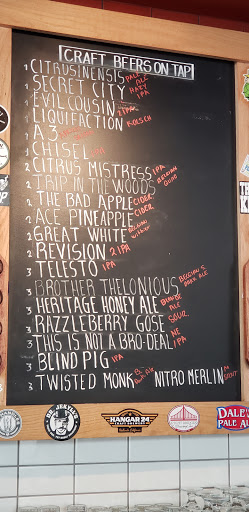 CRAFT BEERS ON TAP
1 CITRUSINENSIS PALE ALE
1 SECRET CITY HAZY IPA
1 EVIL COUSIN 2IPA
1 LIQUIFACTION KOLSCH
1 A3
1 CHISEL IPA
2 CITRUS MISTRESS IPA
2 TRIP IN THE WOODS BELGIAN QUAD
2 THE BAD APPLE CIDER
2 ACE PINEAPPLE CIDER
2 GREAT WHITE BELGIAN
2 REVISION 2IPA
2 TELESTO IPA
3 BROTHER THELONIOUS BELGIAN S DARK ALE
3 HERITAGE HONEY ALE BLONDE ALE
3 RAZZLEBERRY GOSE SOUR
3 THIS IS NOT A BRO-DEAL NE IPA
3 BLIND PIG IPA
3 TWISTED MONK NITRO MERLIN
HANGAR 24
DALE'S
PALE ALE